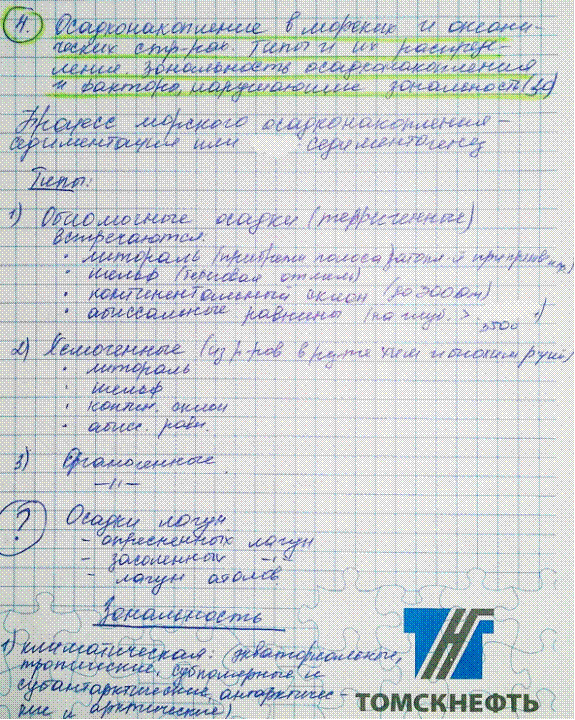 4. Осадконакопление в морских и океани-
ческих стр-рах. Типы и их распреде-
ление. Зональность осадконакопления
и факторы, нарушающие зональность
Процесс морского осадконакопления -
седиментация или седиментогенез
Типы:
1) Обломочные осадки (терригенные)
встречаются:
• литораль (прибрежн полоса
• шельф
• континентальный склон (до 3000м)
• абиссальные равнины (на глуб. > 3500
2) Хемогенные (из р-ров в рез-те хим и биохим
• литораль
• шельф
• контин. склон
• абисс. равн.
3) Органогенные
—//—
? Осадки лагун
- опресненных лагун
- засоленных —//—
- лагун атолов
Зональность
1) климатическая: (экваториальные,
тропические, субполярные и
субантарктические, антарктичес-
кие и арктические)
ТОМСКНЕФТЬ